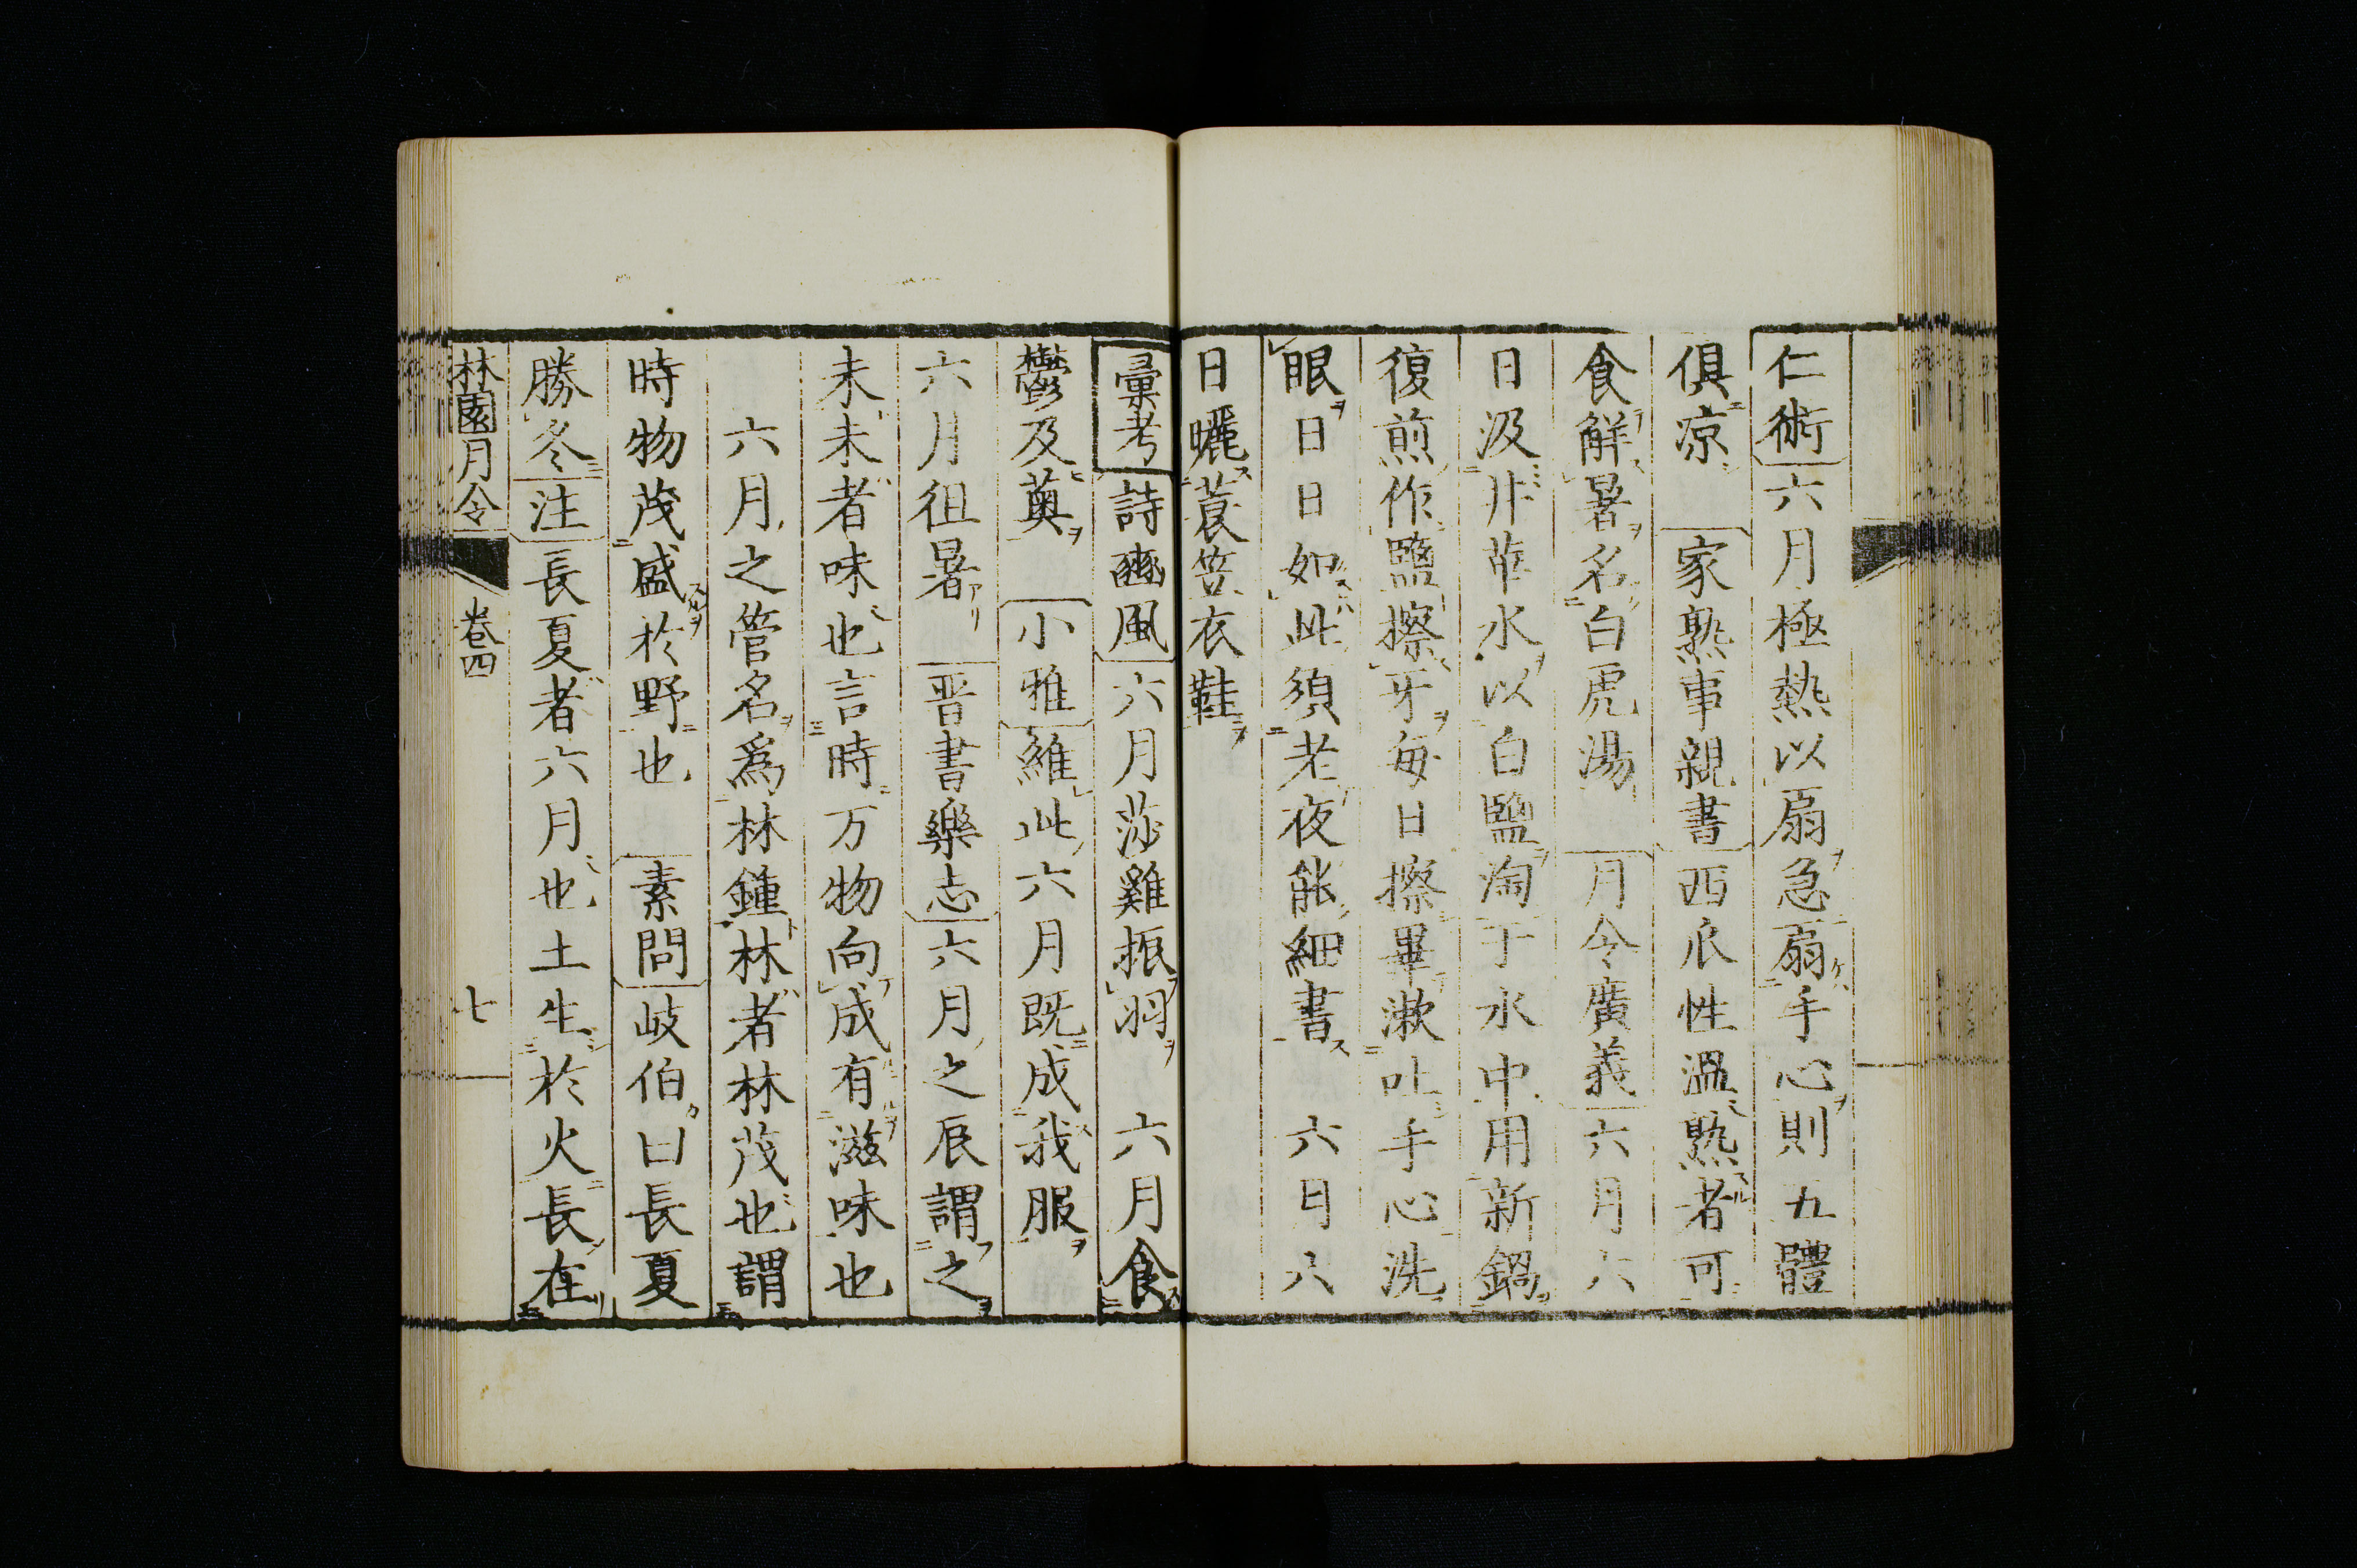 仁術六月極熱以扇急扇手心則五體
俱凉　家熟事親書西瓜性溫熟者可
食解暑名白虎湯　月令廣義六月六
日汲井華水以白鹽淘于水中用新鍋
復煎作鹽擦牙毎日擦畢漱吐手心洗
眼日日如此須老夜能細書　六月八
日曬蓑笠衣鞋
彙考詩豳風六月莎雞振羽　六月食
鬱及薁　小雅維此六月既成我服
六月徂暑　晉書樂志六月之辰謂之
未未者味也言時万物向成有滋味也
六月之管名爲林鍾林者林茂也謂
時物茂盛於野也　素問岐伯曰長夏
勝冬注長夏者六月也土生於火長在
林園月令　卷四　七